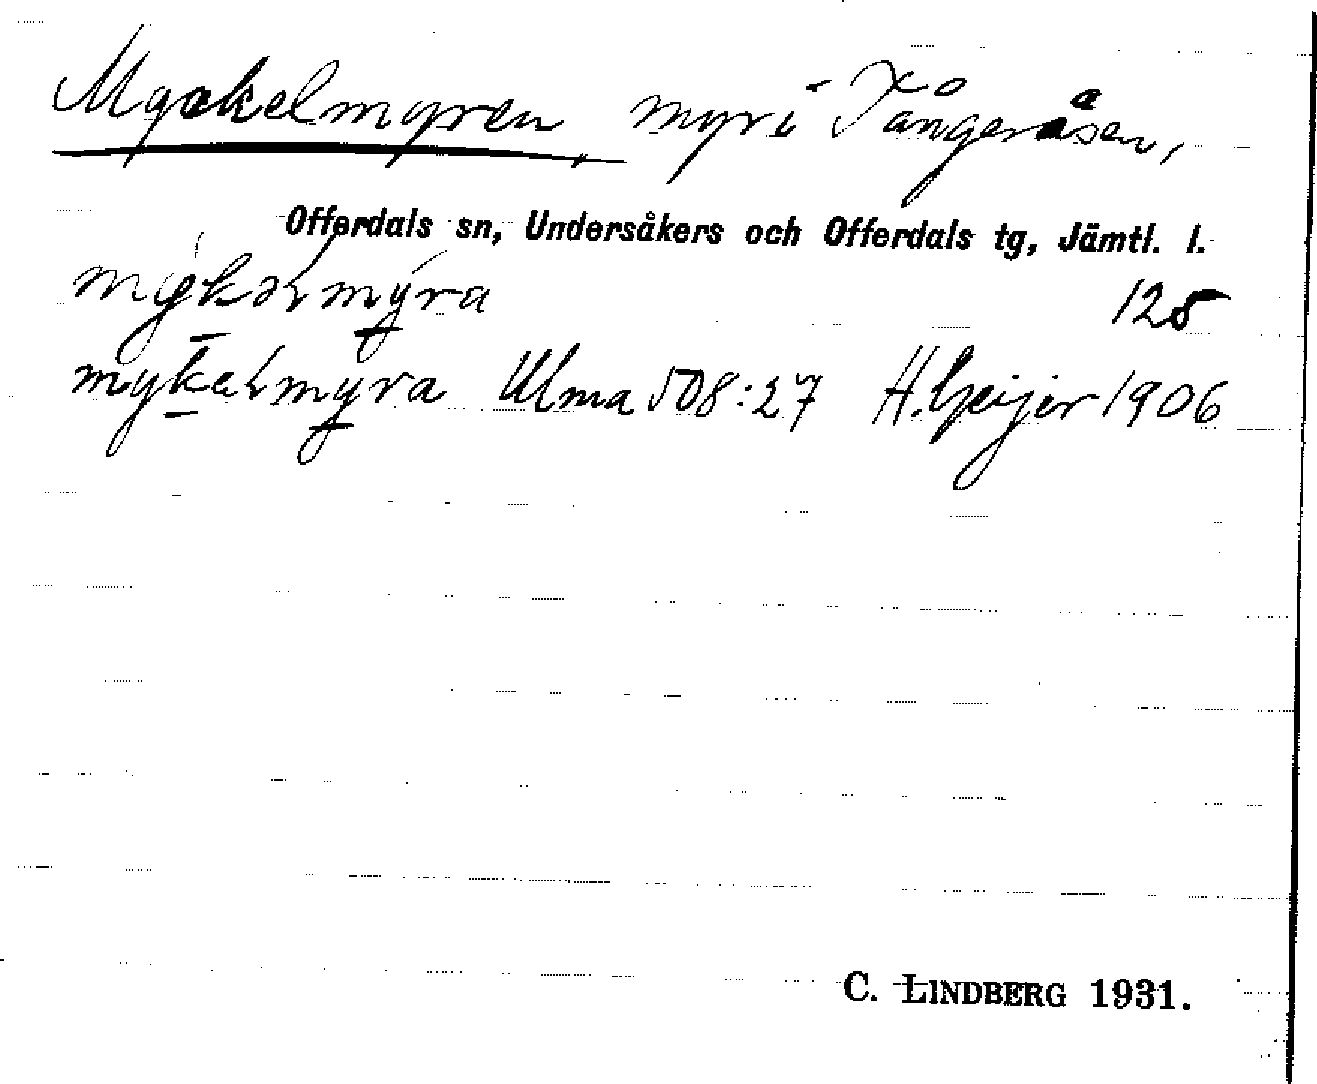 Myckelmyren, myr i Tångeråsen,
Offerdals sn, Undersåkers och Offerdals tg, Jämtl. l.
mykəLmýra 128
mykeLmyra Ulma 508:27 H. Geijer 1906
C. LINDBERG 1931.